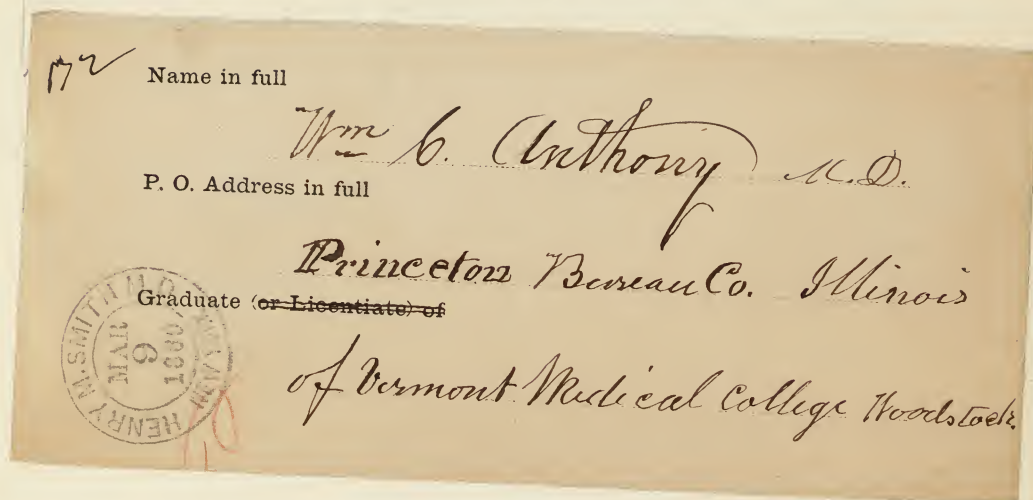 172
Name in full
Wm C. Anthony M.D.
P. O. Address in full
Princeton Bureau Co. Illinois
Graduate (or Licentiate) of
of Vermont Medical College Woodstock.
HENRY M. SMITH M.D.
MAR
9
1880